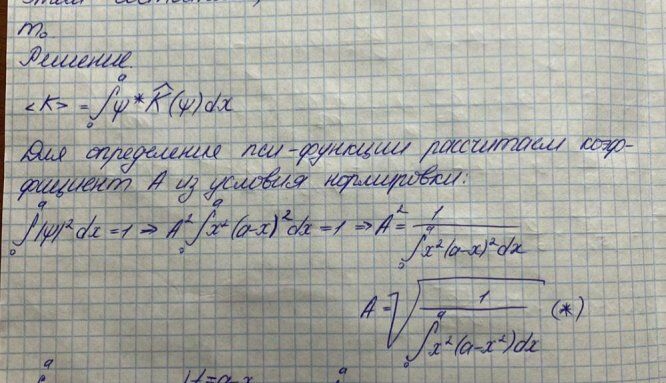 m₀
Решение.
<K> = ∫₀ᵃ ψ* K̂(ψ)dx
Для определение пси-функции рассчитаем коэф-
фициент A из условия нормировки:
∫₀ᵃ |ψ|² dx = 1 ⇒ A² ∫₀ᵃ x²(a-x)² dx = 1 ⇒ A² = 1 / ∫₀ᵃ x²(a-x)² dx
A = √(1 / ∫₀ᵃ x²(a-x²)dx) (*)